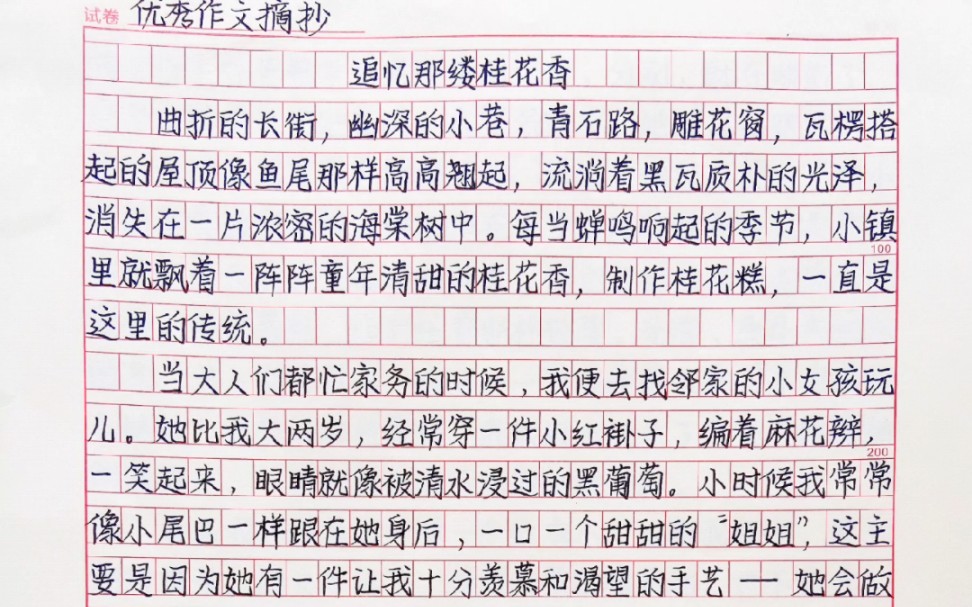 试卷 优秀作文摘抄
追忆那缕桂花香
曲折的长街，幽深的小巷，青石路，雕花窗，瓦楞搭
起的屋顶像鱼尾那样高高翘起，流淌着黑瓦质朴的光泽，
消失在一片浓密的海棠树中。每当蝉鸣响起的季节，小镇
100
里就飘着一阵阵童年清甜的桂花香，制作桂花糕，一直是
这里的传统。
当大人们都忙家务的时候，我便去找邻家的小女孩玩
儿。她比我大两岁，经常穿一件小红褂子，编着麻花辫，
200
一笑起来，眼睛就像被清水浸过的黑葡萄。小时候我常常
像小尾巴一样跟在她身后，一口一个甜甜的“姐姐”，这主
要是因为她有一件让我十分羡慕和渴望的手艺——她会做